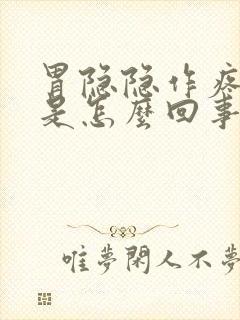 胃隐隐作疼
是怎麼回事
唯夢閑人不夢